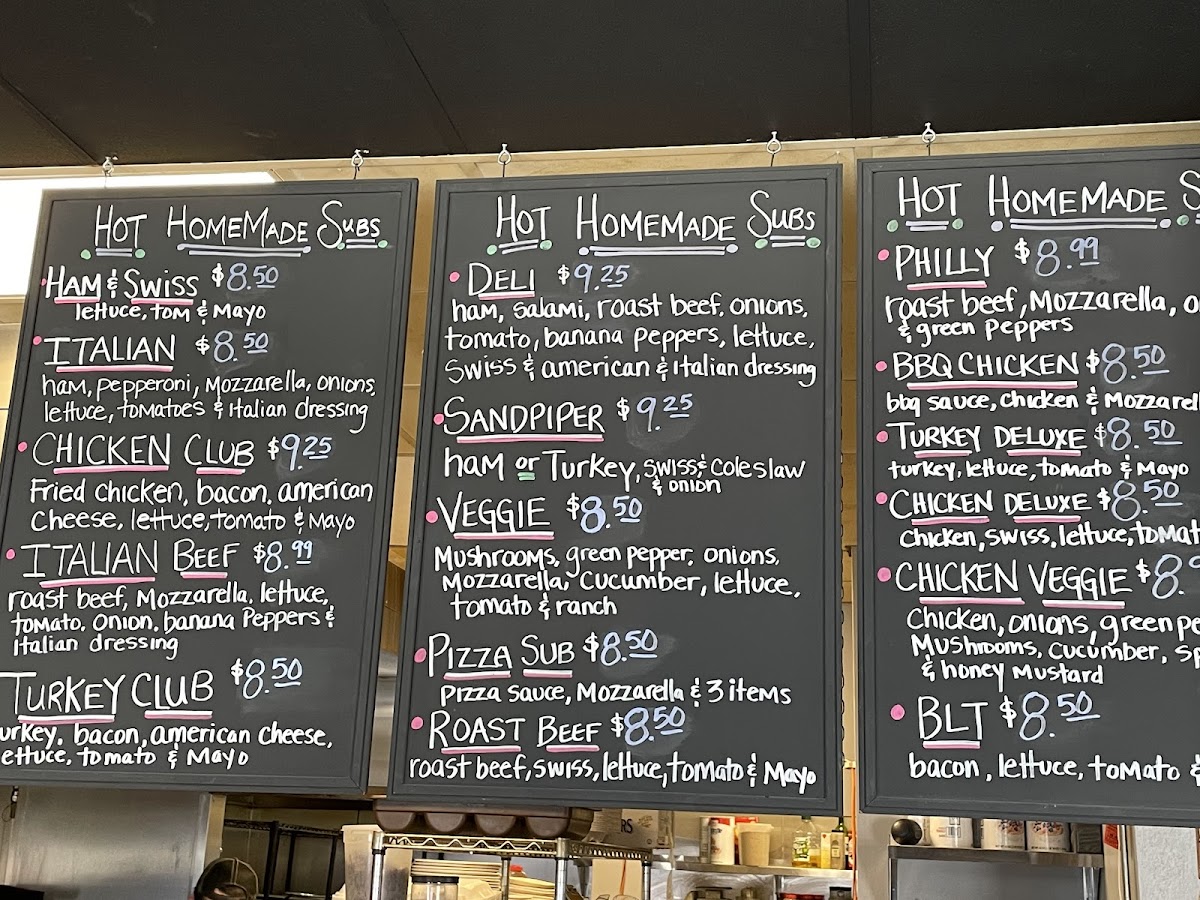 HOT HOMEMADE SUBS
HAM & SWISS $8.50
lettuce, tom & Mayo
ITALIAN $8.50
ham, pepperoni, Mozzarella, onions,
lettuce, tomatoes & italian dressing
CHICKEN CLUB $9.25
Fried chicken, bacon, american
Cheese, lettuce, tomato & Mayo
ITALIAN BEEF $8.99
roast beef, Mozzarella, lettuce,
tomato, onion, banana Peppers &
italian dressing
TURKEY CLUB $8.50
urkey, bacon, american cheese,
ettuce, tomato & Mayo
HOT HOMEMADE SUBS
DELI $9.25
ham, salami, roast beef, onions,
tomato, banana peppers, lettuce,
Swiss & american & italian dressing
SANDPIPER $9.25
ham or Turkey, swiss & Coleslaw
& onion
VEGGIE $8.50
Mushrooms, green pepper, onions,
Mozzarella, Cucumber, lettuce,
tomato & ranch
PIZZA SUB $8.50
pizza sauce, Mozzarella & 3 items
ROAST BEEF $8.50
roast beef, swiss, lettuce, tomato & Mayo
HOT HOMEMADE S
PHILLY $8.99
roast beef, Mozzarella, o
& green peppers
BBQ CHICKEN $8.50
bbq sauce, Chicken & Mozzarel
TURKEY DELUXE $8.50
turkey, lettuce, tomato & Mayo
CHICKEN DELUXE $8.50
Chicken, swiss, lettuce, tomat
CHICKEN VEGGIE $8.9
Chicken, onions, green pe
Mushrooms, cucumber, sp
& honey Mustard
BLT $8.50
bacon, lettuce, tomato &